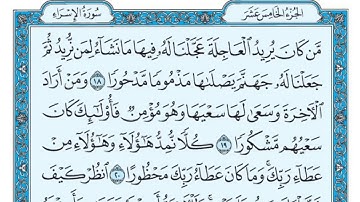 الجزء الخامس عشر
سورة الإسراء
مَّن كَانَ يُرِيدُ الْعَاجِلَةَ عَجَّلْنَا لَهُ فِيهَا مَا نَشَاءُ لِمَن نُّرِيدُ ثُمَّ
جَعَلْنَا لَهُ جَهَنَّمَ يَصْلَاهَا مَذْمُومًا مَّدْحُورًا ١٨ وَمَنْ أَرَادَ
الْآخِرَةَ وَسَعَىٰ لَهَا سَعْيَهَا وَهُوَ مُؤْمِنٌ فَأُولَٰئِكَ كَانَ
سَعْيُهُم مَّشْكُورًا ١٩ كُلًّا نُّمِدُّ هَٰؤُلَاءِ وَهَٰؤُلَاءِ مِنْ
عَطَاءِ رَبِّكَ وَمَا كَانَ عَطَاءُ رَبِّكَ مَحْظُورًا ٢٠ انظُرْ كَيْفَ